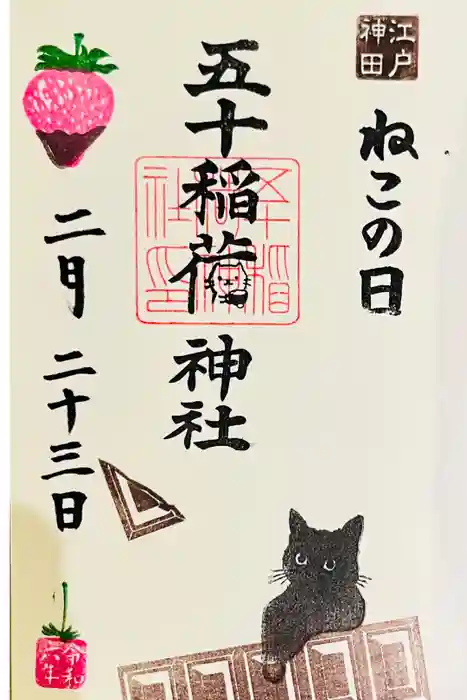 江戸
神田
ねこの日
五十稲荷神社
二月二十三日
令和
六年